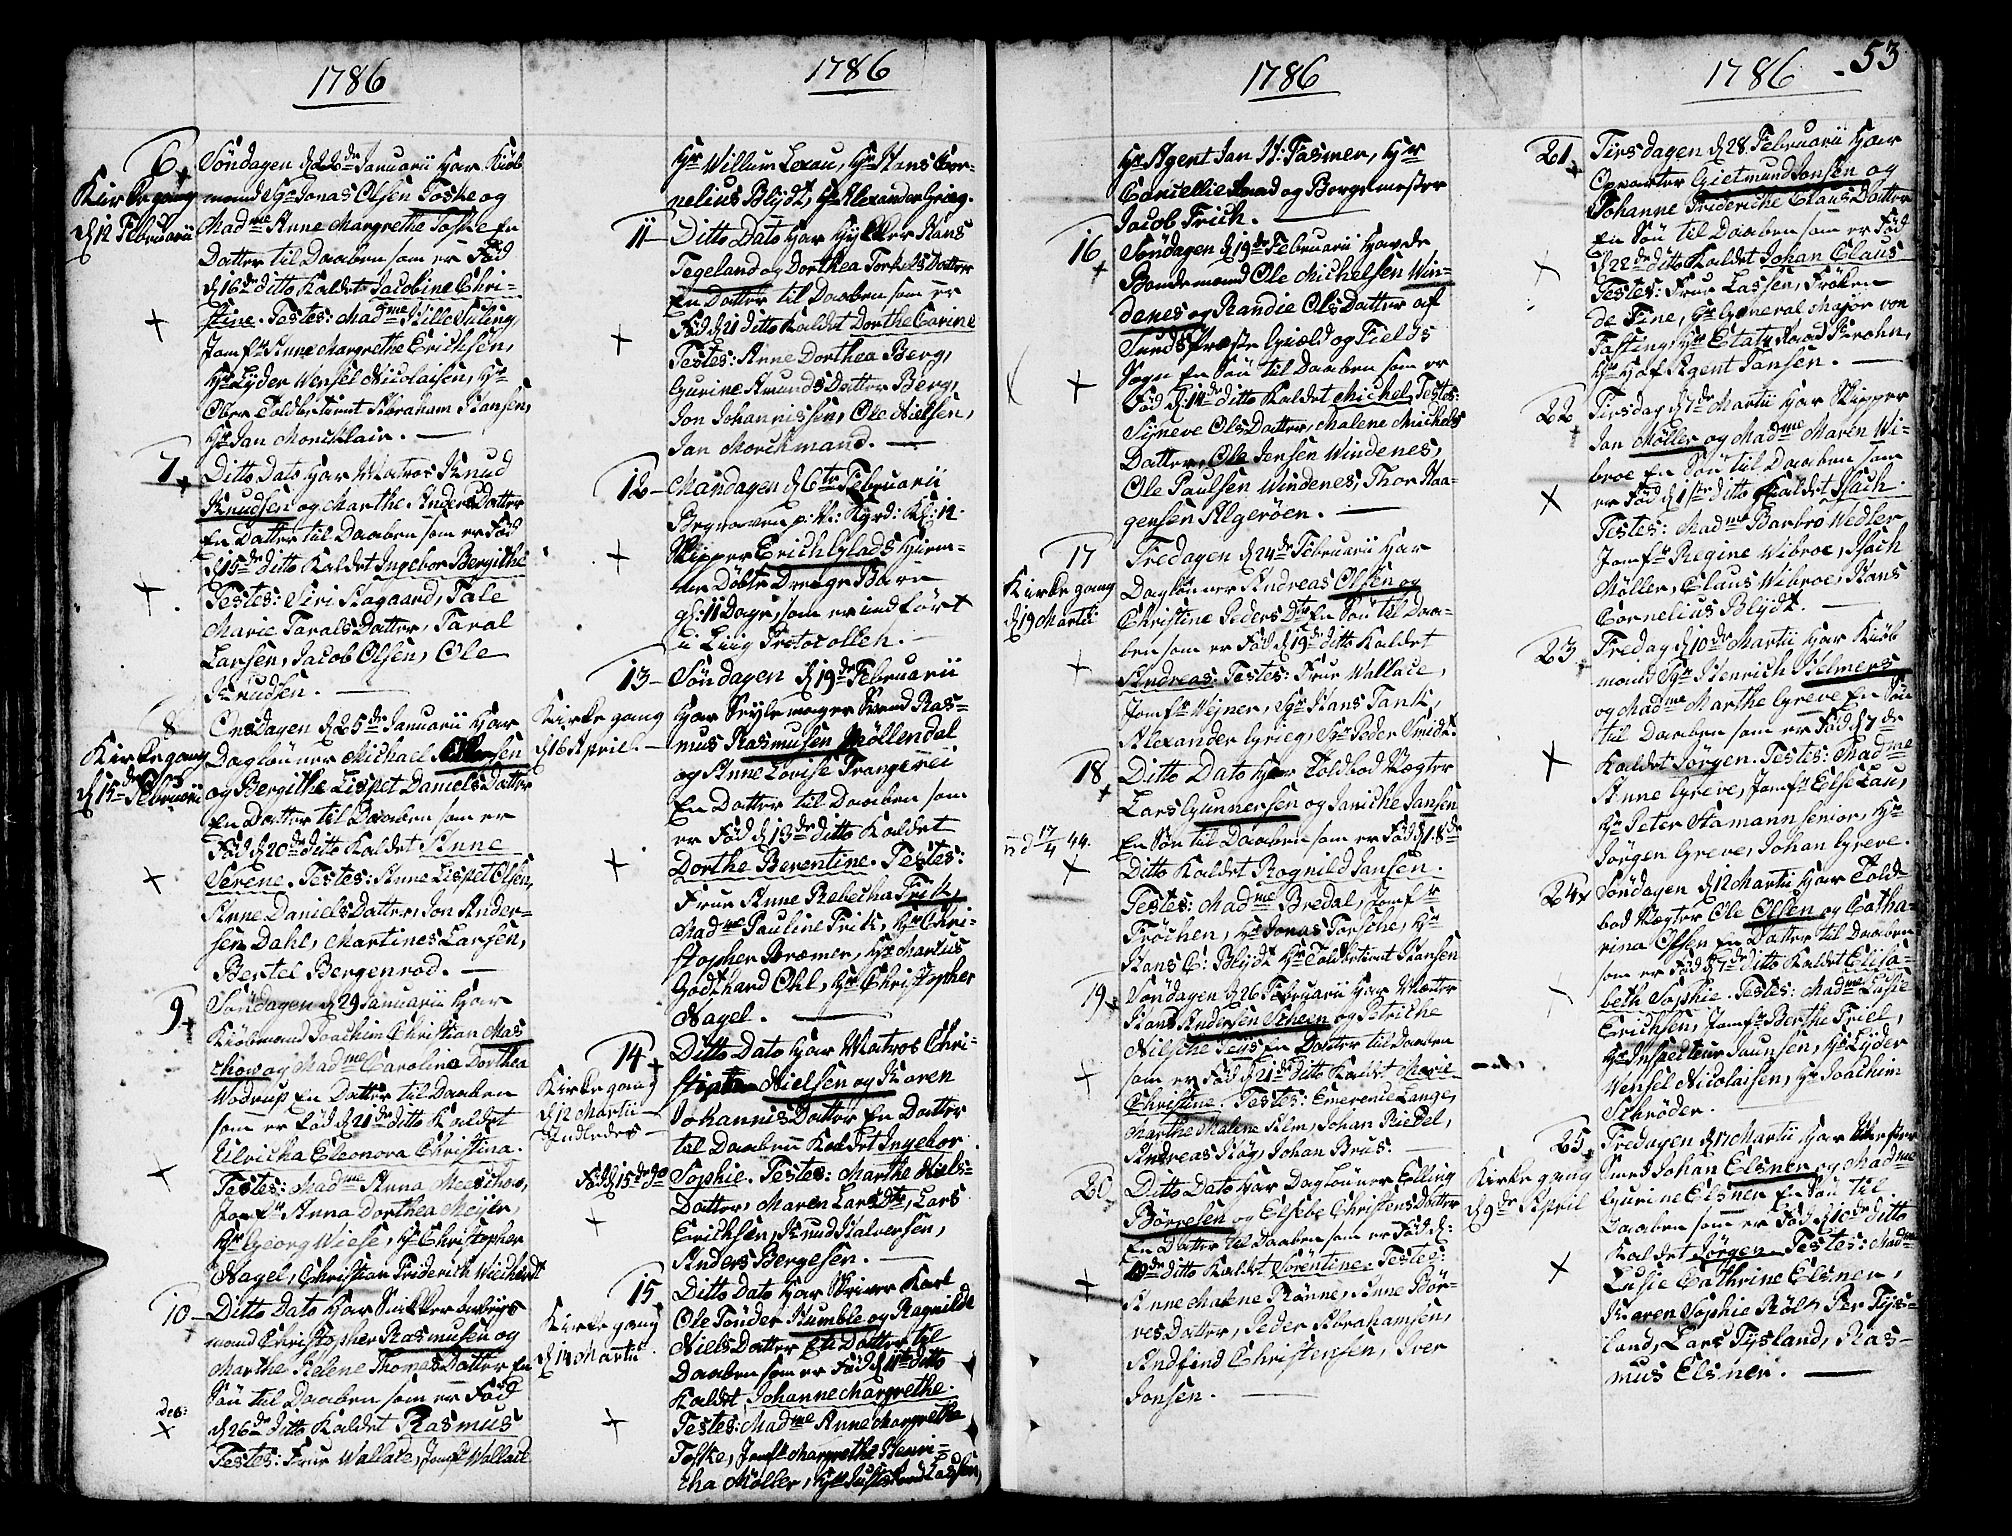 1786
6.
Kirkegang
d 12 Februarii
Søndagen d 22de Januarii har Kiøb
mand Sr Jonas Olsen Foske og
Madme Anne Margrethe Foske En
Datter til Daaben som er Fød
d 16de ditto Kaldet Jacobine Chri-
stine. Testes: Madme Hille Suling,
Jomfr Anne Margrethe Erichsen,
Hr Lyder Wensel Nicolaisen, Hr
Ober Toldbetient Abraham Hansen,
Hr Jan Moncklair.
7.
Ditto Dato har Matros Knud
Knudsen og Marthe Anders Datter
En Datter til Daaben som er Fød
d 15de ditto Kaldet Ingebor Bergithe
Testes: Siri Aagaard, Tale
Marie Tarals Datter, Taral
Larsen, Jacob Olsen, Ole
Knudsen.
8
Kirkegang
d 15de Februarii
Onsdagen d 25de Januarii har
Daglønner Michael
og Bergithe Lispet Daniels Datter
En Datter til Daaben som er
Fød d 20de ditto Kaldet Anne
Serene. Testes: Anne Lispet Olsen,
Anne Daniels Datter, Jon Ander-
sen Dahl, Martines Larsen,
Bertel Bergenrød.
9.
Søndagen d 29 Januarii har
Kiøbmand Joachim Christian Mas
chow og Madme Caroline Dorthea
Wodrup En Datter til Daaben
som er Fød d 21de ditto Kaldet
Ulricha Eleonora Christina.
Testes: Madme Anna Meschow,
Jomfr Anna Dorthea Meyer,
Hr Georg Wiese, Hr Christopher
Nagel, Christian Friderich Wiechardt
10
Ditto Dato har Snikker
mand Christopher Rasmusen og
Marthe Helene Thomes Datter En
Søn til Daaben som er Fød
d 26de ditto Kaldet Rasmus
Testes: Frue Wallace, Jomfr Wallace
1786
Hr Willum Lexau, Hr Hans Cor-
nelius Blydt, Hr Alexander Grieg.
11
Ditto Dato har Gyldler Hans
Tegeland og Dorthea Torkels Datter
En Datter til Daaben som er
Fød d 21 ditto Kaldet Dorthe Carine
Testes: Anne Dorthea Berg,
Gurine Amunds Datter Berg,
Jon Johannissen, Ole Nielsen,
Jan Morckmand.
12
Mandagen d 6te Februarii
Begraven p: N: Kyrd: Kl: 12
Skipper Erich Glads Hiem-
me Døbte Drenge Barn
gl: 11 Dage, som er indført
i Liig Protocollen.
13
Kirkegang
d 16 April.
Søndagen d 19de Februarii
har Seylmager Svend Ras-
mus Rasmusen Møllendal
og Anne Lovise Frangerii
En Datter til Daaben som
er Fød d 13de ditto Kaldet
Dorthe Berentine. Testes:
Frue Anne Rebecha Frik,
Madme Pauline Frik, Hr Chri-
stopher Bræmer, Hr Martius
Godthard Ohl, Hr Christopher
Nagel.
14
Kirkegang
d 12 Martii
Indledes
Fød d 15de do
Ditto Dato har Matros Chri-
Nielsen og Karen
Johannis Datter En Datter
til Daaben Kaldet Ingebor
Sophie. Testes: Marthe Niels-
Datter, Maren Lars Dtr, Lars
Erichsen, Knud Halversen,
Anders Bergesen.
15
Kirkegang
d 14 Martii
Ditto Dato har Skriver Karl
Ole Tønder Humble og Ragnilde
Niels Datter En Datter til
Daaben som er Fød d 11te ditto
Kaldet Johanne Margrethe.
Testes: Madme Anne Margrethe
Foske, Jomfr Margrethe Henri-
cha Møller, Hr
1786
Hr Agent Jan H: Fasmer, Hr
Cancellie Raad og Borgemester
Jacob Frich.
16
Søndagen d 19de Februarii har de
Bondemand Ole Michelsen Win-
denes og Randie Ols Datter af
Sunds Præste Giæld og Fields
Sogn En Søn til Daaben som er
Fød d 14de ditto Kaldet Michel, Testes:
Synneve Ols Datter, Malene Michels
Datter, Ole Jensen Windenes,
Ole Paulsen Windenes, Thor Haa-
gensen Algerøen.
17
Kirkegang
d 19 Martii
Fredagen d 24de Februarii har
Dagløner Andreas Olsen og
Christine Peders Dtr En Søn til Daa-
ben som er Fød d 19de ditto Kaldet
Andreas. Testes: Frue Wallace,
Jomfr Wejner, Sr Hans Tank,
Alexander Grieg, Sr Peder Smidt.
18
d 17/4 44.
Ditto Dato har Toldbod Vægter
Lars Gunnersen og Jeniche Jansen
En Søn til Daaben som er Fød d 18de
Ditto Kaldet Ragnild Jansen.
Testes: Madme Bredal, Jomfr
Frochen, Hr Jonas Torsche, Hr
Hans C: Blydt Hr Toldbetient Hansen
19
Søndagen d 26 Februarii har Vægter
Hans Andersen Scheen og Petriche
Nilsche Teys En Datter til Daaben
som er Fød d 21de ditto Kaldet Marie
Christine. Testes: Emerencie Lange,
Marthe Malene Alm, Johan Riedel,
Andreas Høg, Johan Brus.
20
Ditto Dato har Dagløner Elling
Børresen og Elsebe Christens Datter
En Datter til Daaben som er Fød d:
20de ditto Kaldet Sørentine Testes:
Anne Malene Rønne, Anne Bør-
res Datter, Peder Abrahamsen,
Andfind Christensen, Iver
Jonsen.
1786
53
21
Tirsdagen d 28 Februarii har
Opvarter Gietmund Jonsen og
Johanne Frideriche Claus Datter
En Søn til Daaben som er Fød
d 22de ditto Kaldet Johan Claus
Testes: Frue Lassen, Frøken
de Fine, Hr General Major von
Fasting, Hr Etats Raad Krohn,
Hr Hof Agent Jansen.
22
Tirsdag d 7de Martii har Skipper
Jan Møller og Madme Maren Wi-
broe En Søn til Daaben som
er Fød d 1ste ditto Kaldet Isach.
Testes: Madme Barbro Wedler
Jomfr Regine Wibroe, Isach
Møller, Claus Wibroe, Hans
Cornelius Blydt.
23
Fredag d 10de Martii har Kiøb
mand Sr Henrich Helmers
og Madme Marthe Greve En Søn
til Daaben som er Fød d 7de
Kaldet Jørgen. Testes: Madme
Anne Greve, Jomfr Else Lau,
Hr Peter Hamann senior, Hr
Jørgen Greve, Johan Greve.
24
Søndagen d 12 Martii har Told-
bod Vægter Ole Olsen og Catha-
rina Olsen En Datter til Daaben
som er Fød d 7de ditto Kaldet Elisa-
beth Sophie. Testes: Madme Lusie
Erichsen, Jomfr Berthe Friel,
Hr Inspecteur Jaunsen, Hr Lyder
Wensel Nicolaisen, Hr Joachim
Schrøder.
25
Kirkegang
d 9de April
Fredagen d 17 Martii har Mester
Smed Johan Elsner og Madme
Gurine Elsner En Søn til
Daaben som er Fød d 10de ditto
Kaldet Jørgen Testes: Madme
Lusie Cathrine Elsner,
Karen Sophie Røll, Per Tys-
land, Lars Tysland, Ras-
mus Elsner.